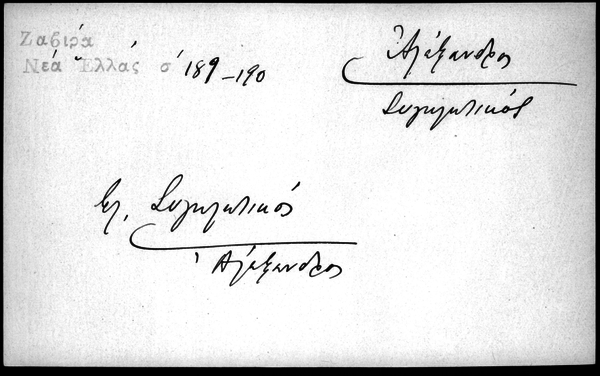 Ζαβίρα
Νέα Ἑλλάς σ 189-190
Ἀλέξανδρος
Συγκλητικός
Βλ. Συγκλητικός
Ἀλέξανδρος